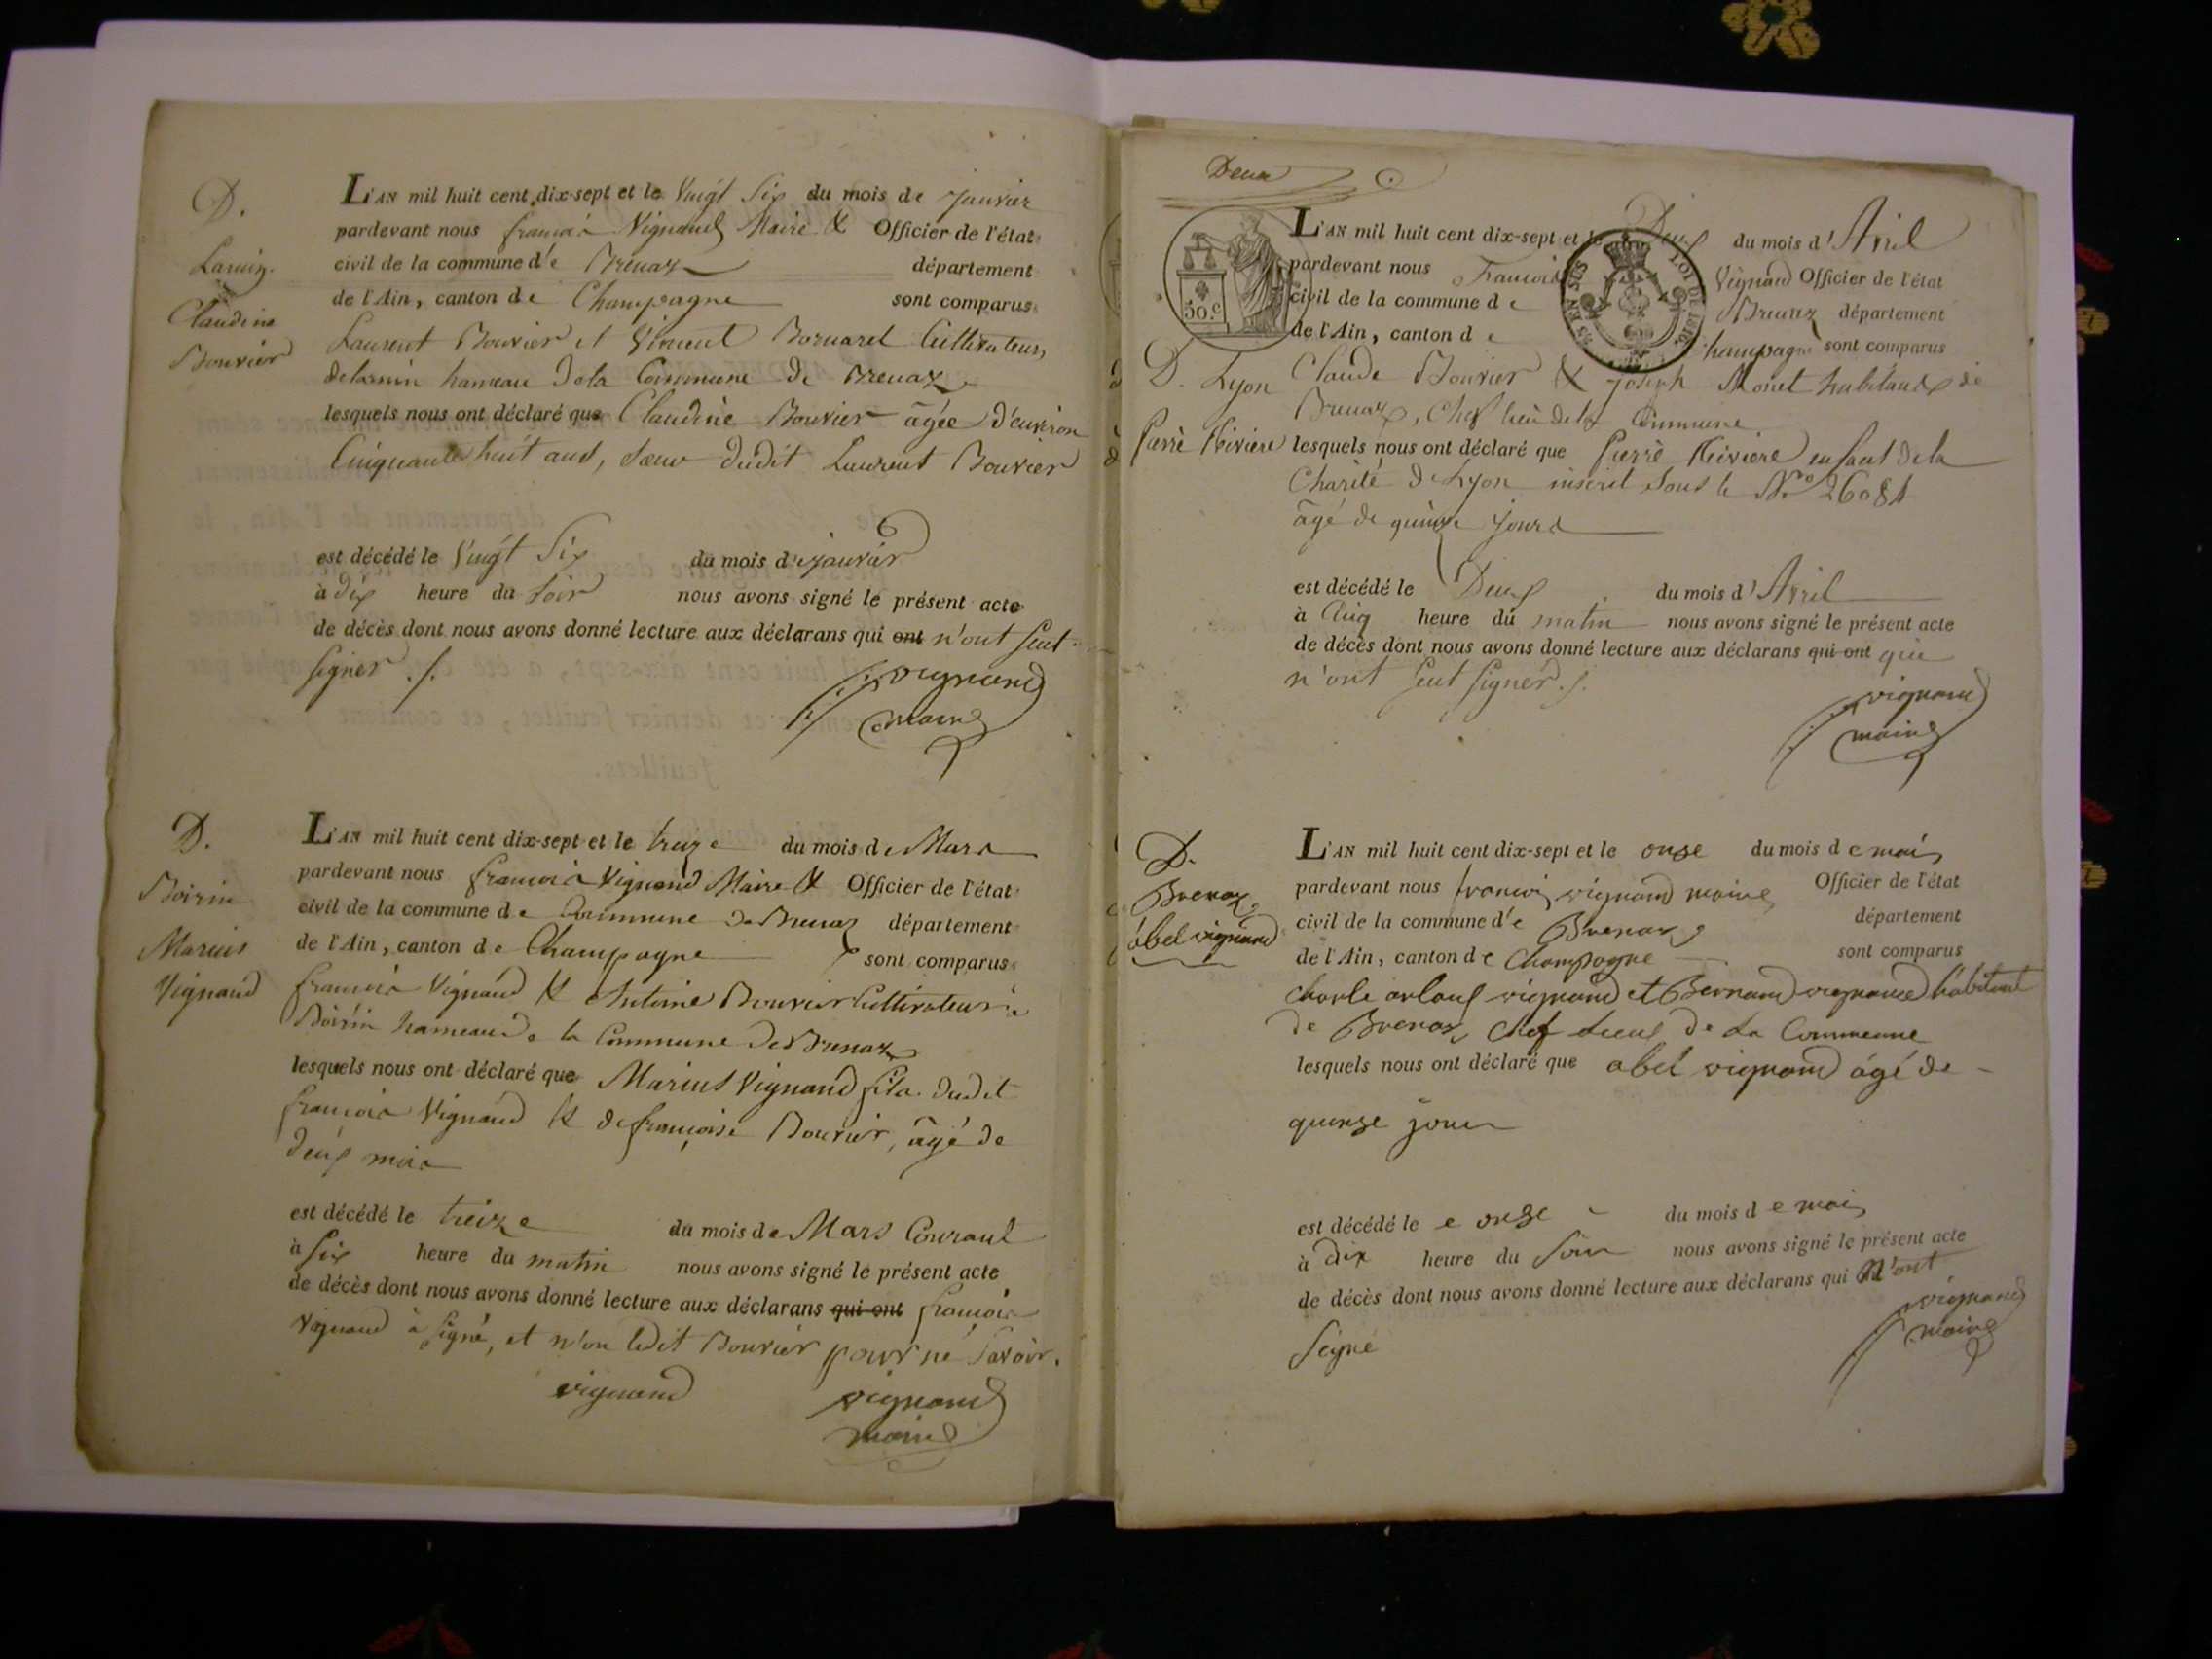 D.
Laruin
Claudine
Bouvier
L'AN mil huit cent dix-sept et le Vingt Six du mois de janvier
pardevant nous francois Vignand Maire & Officier de l'état
civil de la commune de Brenaz département
de l'Ain, canton de Champagne sont comparus
Laurent Bouvier et Vincent Bornarel Cultivateurs
hameau de la Commune de Brenaz
lesquels nous ont déclaré que Claudine Bouvier âgée d'environ
Cinquante huit ans, sœur dudit Laurent Bouvier
est décédé le Vingt Six du mois de janvier
à dix heure du soir nous avons signé le présent acte
de décès dont nous avons donné lecture aux déclarans qui ont n'ont seut
signer ./.
vignand
maire
D.
Boirin
Marius
Vignand
L'AN mil huit cent dix-sept et le treize du mois de Mars
pardevant nous francois Vignand Maire & Officier de l'état
civil de la commune de Commune de Brenaz département
de l'Ain, canton de Champagne sont comparus
francois Vignand & Antoine Bouvier Cultivateurs à
Boirin hameau de la Commune de Brenaz
lesquels nous ont déclaré que Marius Vignand fils dudit
francois Vignand & de françoise Bouvier, âgé de
deux mois
est décédé le treize du mois de Mars Courant
à six heure du matin nous avons signé le présent acte
de décès dont nous avons donné lecture aux déclarans qui ont francois
Vignand à signé, et n'on ledit Bouvier pour ne savoir.
vignand vignand
maire
Deux
50.c
EN SUS LOI DE 1816.
L'AN mil huit cent dix-sept et le Deux du mois d'Avril
pardevant nous Francois Vignand Officier de l'état
civil de la commune de Brenaz département
de l'Ain, canton de hampagne sont comparus
D. Lyon
Pierre Riviere
Claude Bouvier & Joseph Monet habitants de
Brenaz, Chef lieu de la Commune
lesquels nous ont déclaré que Pierre Riviere enfant de la
Charité de Lyon inscrit sous le Nro 26081
âgé de quinze jours
est décédé le Deux du mois d'Avril
à Cinq heure du matin nous avons signé le présent acte
de décès dont nous avons donné lecture aux déclarans qui ont qui
n'ont seut signer ./.
vignand
maire
D.
Brenaz
abel vignand
L'AN mil huit cent dix-sept et le onse du mois de mai
pardevant nous francois vignand maire Officier de l'état
civil de la commune de Brenaz département
de l'Ain, canton de Champagne sont comparus
charle vignand et Bernard vignand habitant
de Brenaz Chef Lieux de La Commune
lesquels nous ont déclaré que abel vignand âgé de
quinse jour
est décédé le e onse du mois de mai
à dix heure du soir nous avons signé le présent acte
de décès dont nous avons donné lecture aux déclarans qui n'ont
signé
vignand
maire